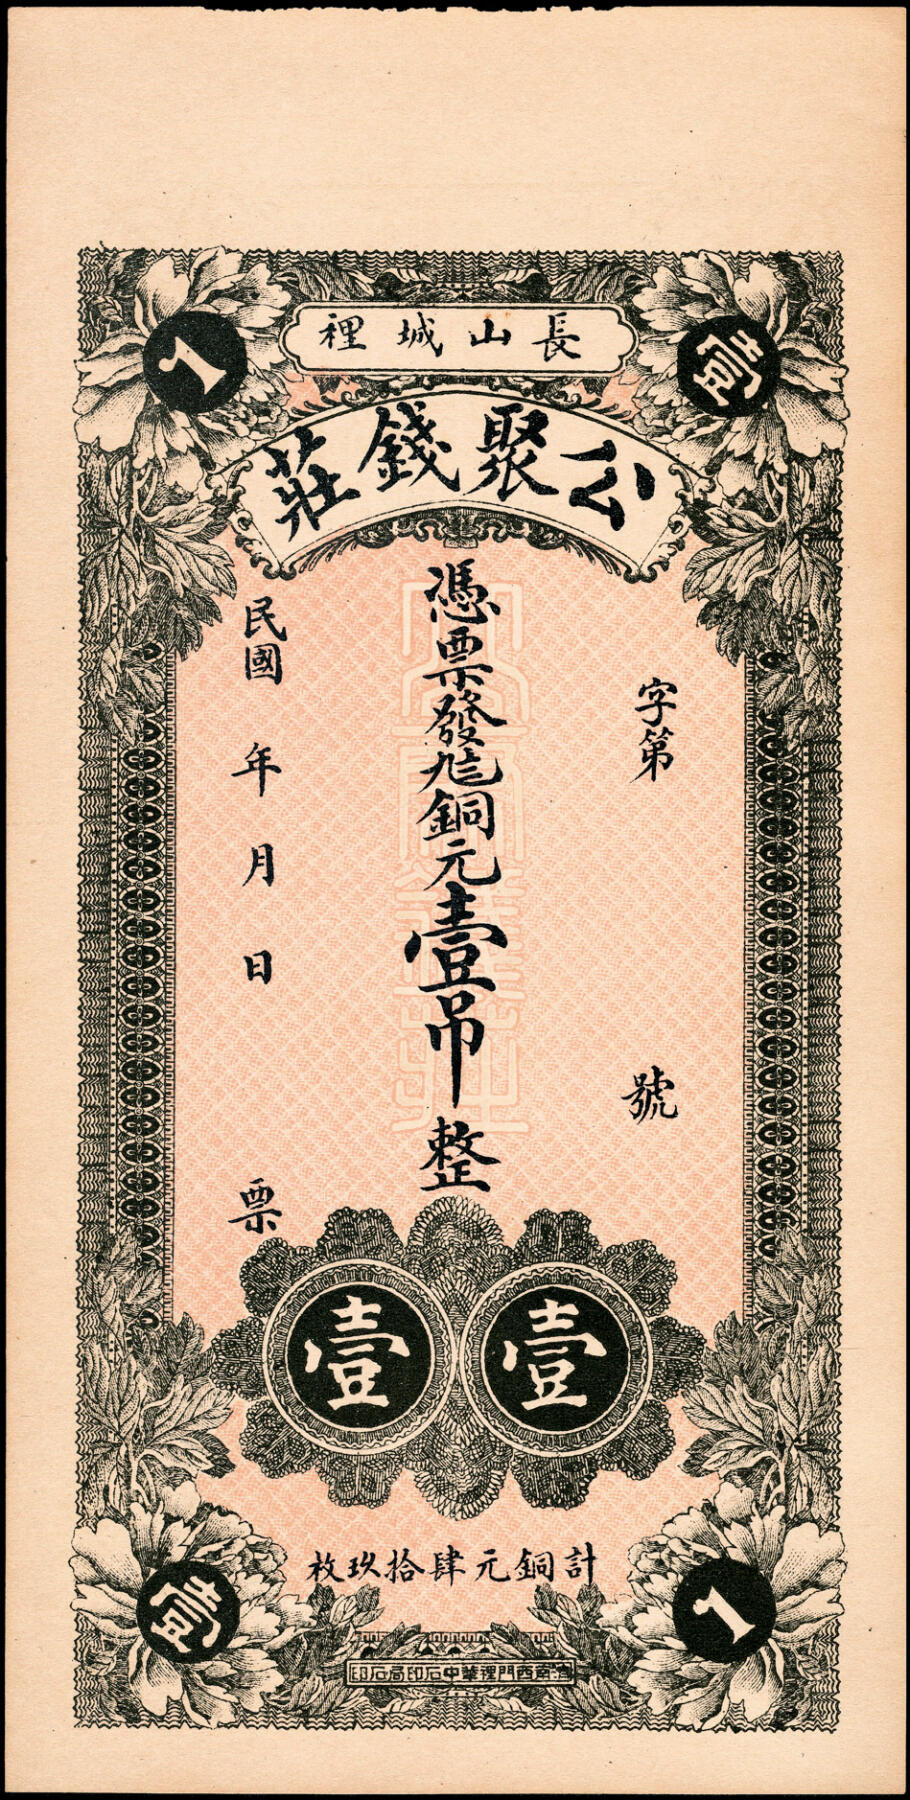 長山城裡
公聚錢莊
壹
1
字第 號
憑票發銅元壹吊整
民國 年 月 日 票
壹 壹
計銅元肆拾玖枚
1
壹
濟南西門裡華中石印局石印